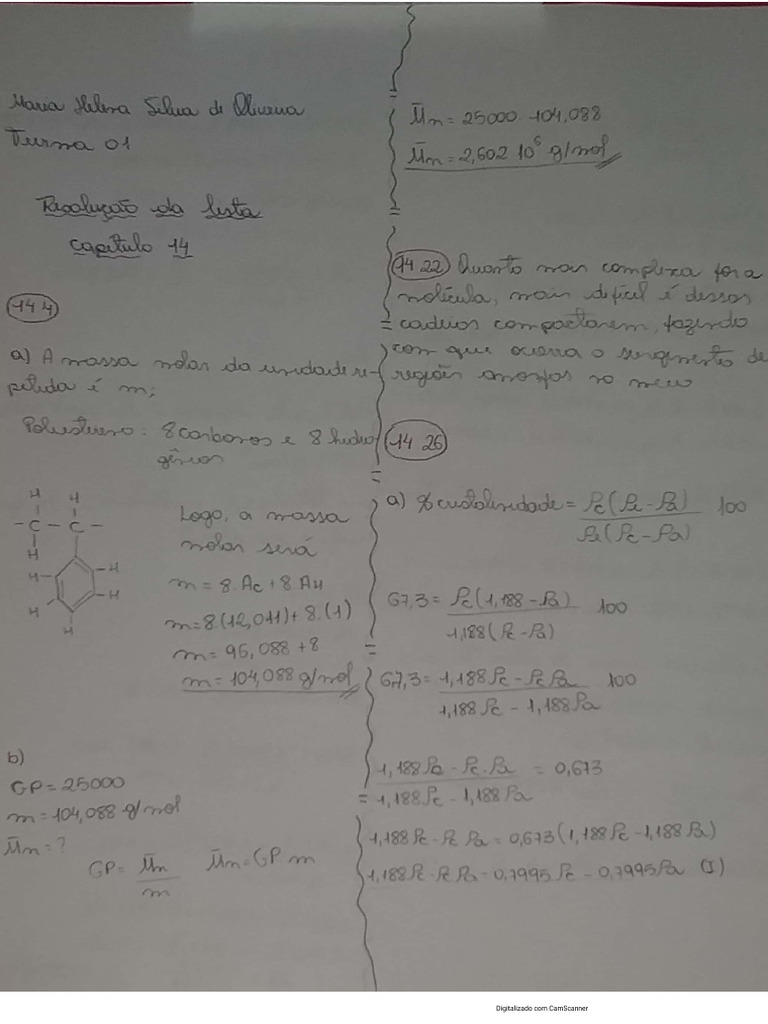 Maria Helena Silva de Oliveira
Turma 01
Resolução da lista
capítulo 14
14.4
a) A massa molar da unidade re-
petida é m;
Poliestireno: 8 carbonos e 8 hidro
gênios
H H
- C - C -
H
H H
H H
H
Logo, a massa
molar será
m = 8.Ac + 8.AH
m = 8.(12,011) + 8.(1)
m = 96,088 + 8
m = 104,088 g/mol
b)
GP = 25000
m = 104,088 g/mol
M̄n = ?
GP = M̄n / m M̄n = GP.m
M̄n = 25000.104,088
M̄n = 2,602.10⁶ g/mol
14.22 Quanto mais complexa for a
molécula, mais difícil é dessas
cadeias compactarem, fazendo
com que ocorra o surgimento de
regiões amorfas no meio
14.26
a) % cristalinidade = ρc(ρe - ρa) / ρe(ρc - ρa) . 100
67,3 = ρc(1,188 - ρa) / 1,188(ρc - ρa) . 100
67,3 = 1,188ρc - ρcρa / 1,188ρc - 1,188ρa . 100
1,188ρc - ρc.ρa / 1,188ρc - 1,188ρa = 0,673
1,188ρc - ρcρa = 0,673(1,188ρc - 1,188ρa)
1,188ρc - ρcρa = 0,7995ρc - 0,7995ρa (I)
Digitalizado com CamScanner